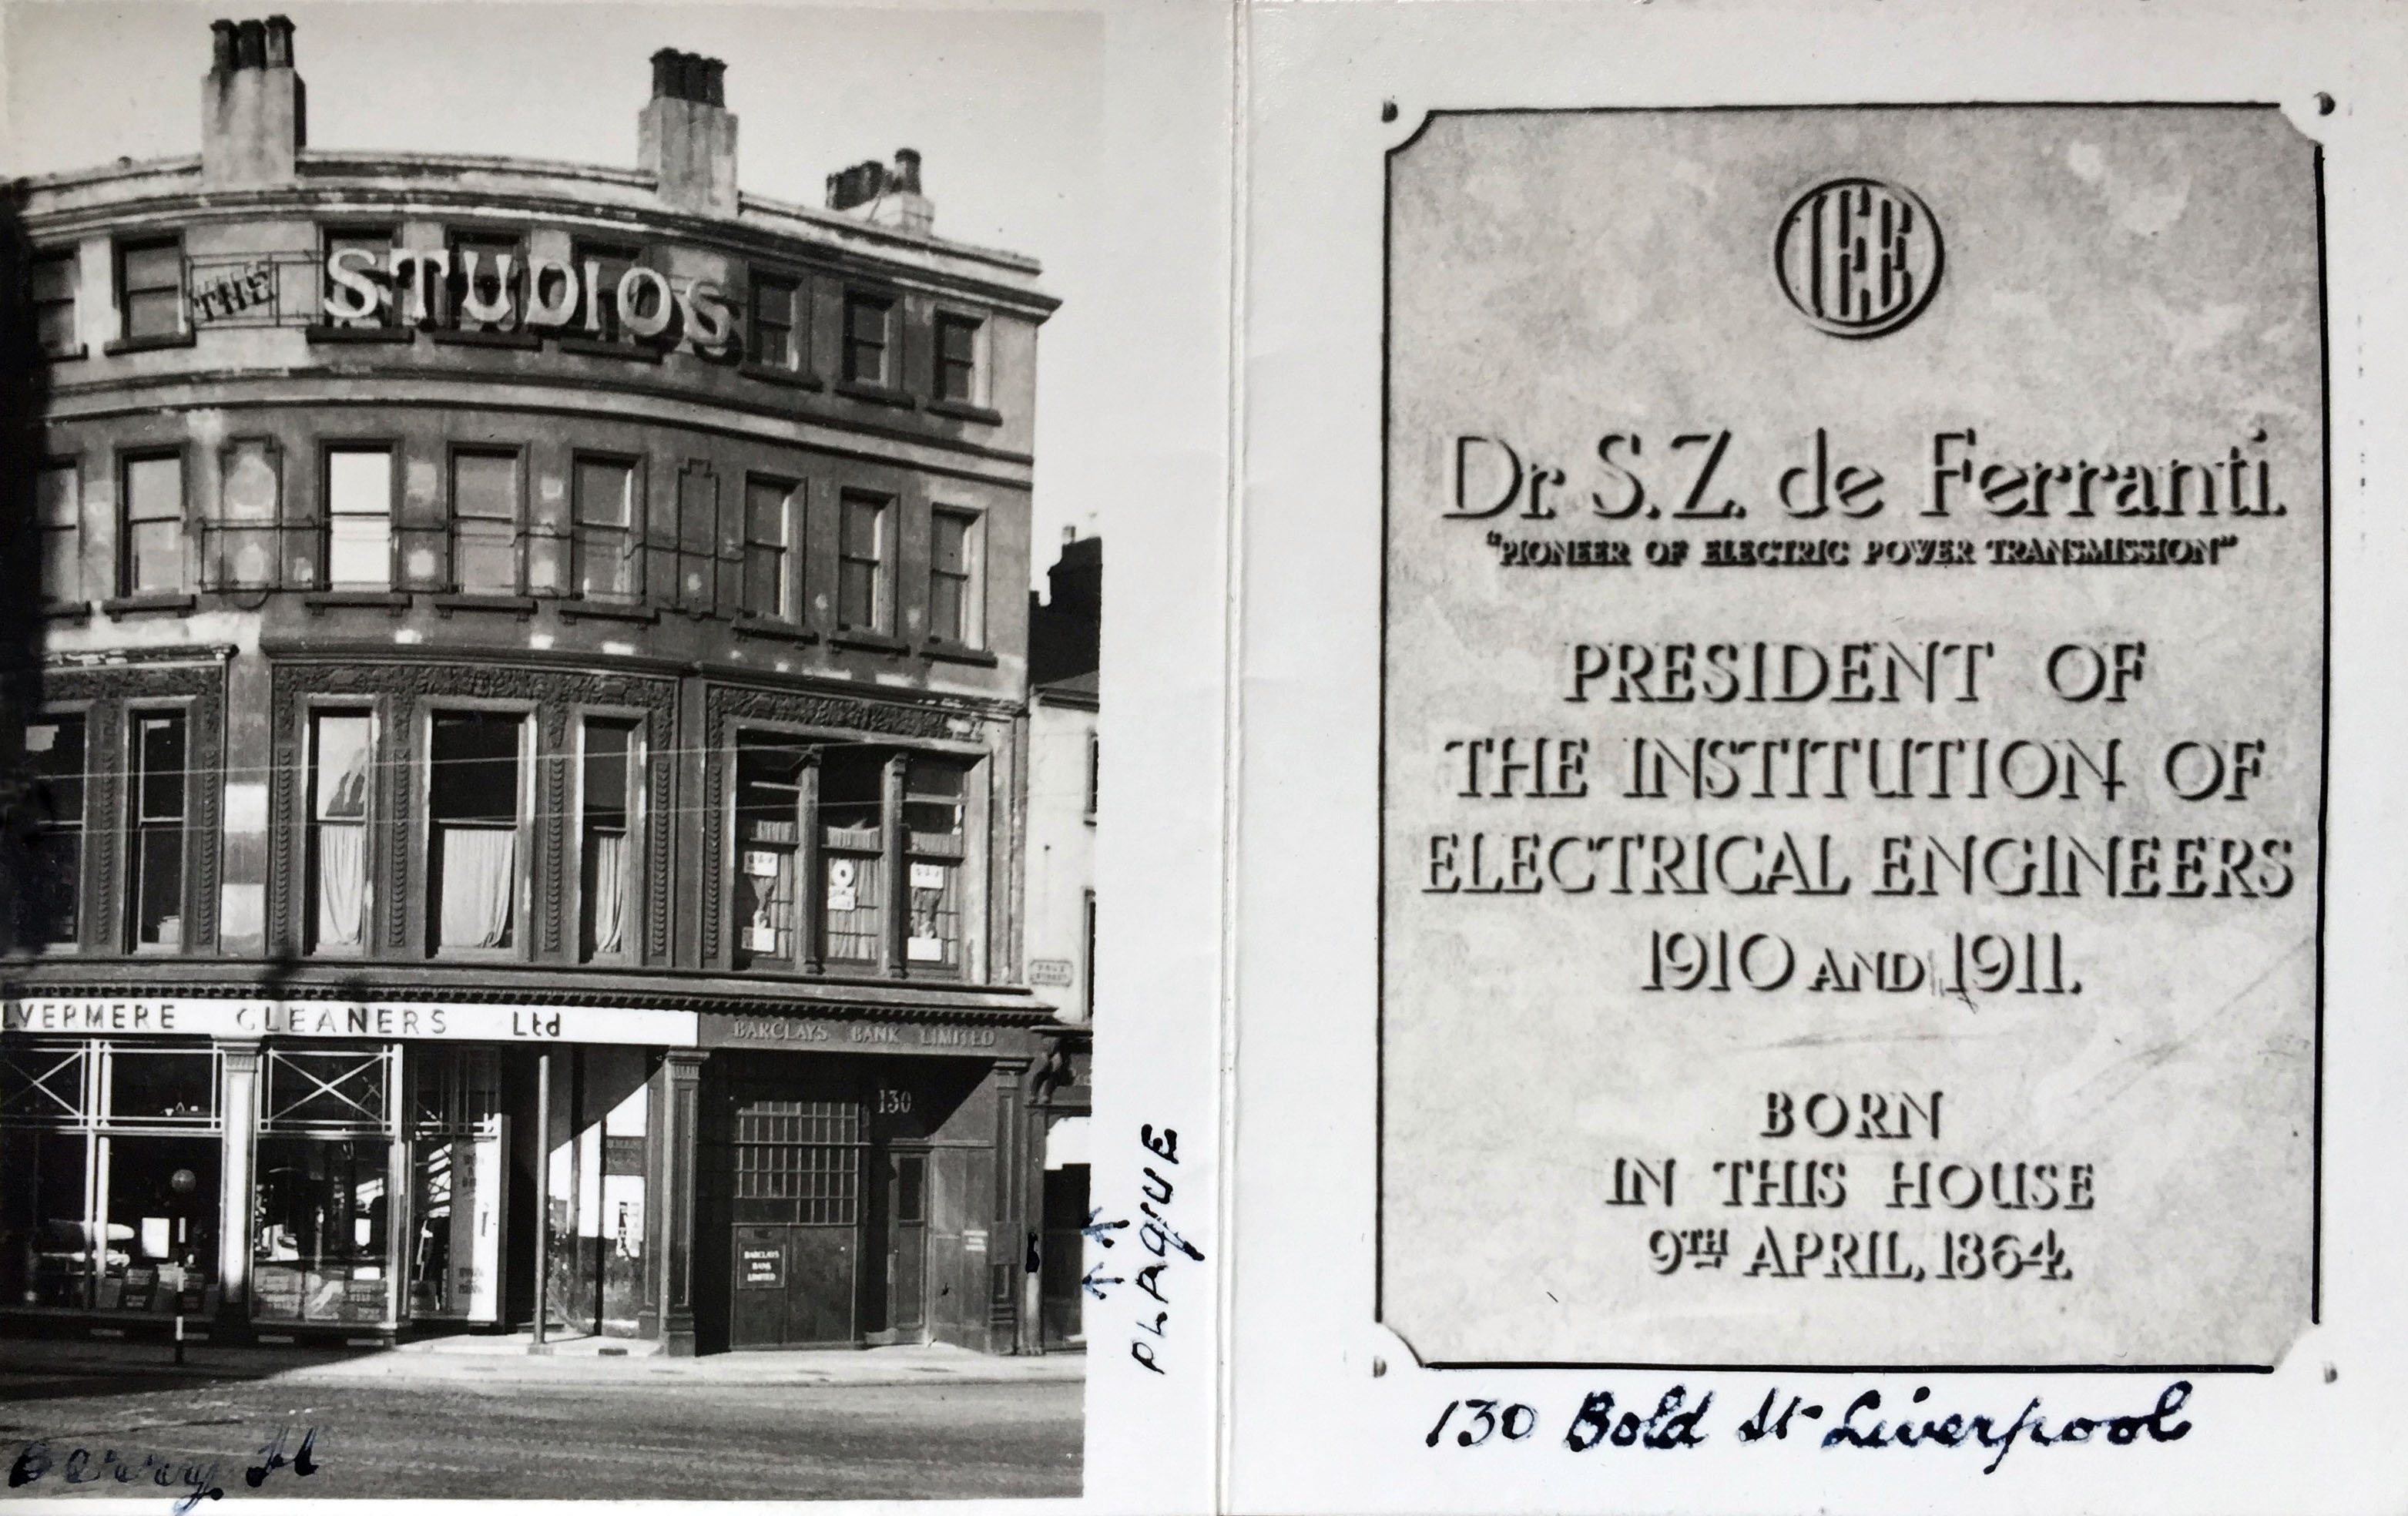 THE STUDIOS
LVERMERE CLEANERS Ltd
BARCLAYS BANK LIMITED
130
BARCLAYS
BANK
LIMITED
Berry St
PLAQUE
Dr. S. Z. de Ferranti.
"PIONEER OF ELECTRIC POWER TRANSMISSION"
PRESIDENT OF
THE INSTITUTION OF
ELECTRICAL ENGINEERS
1910 AND 1911.
BORN
IN THIS HOUSE
9TH APRIL, 1864.
130 Bold St Liverpool